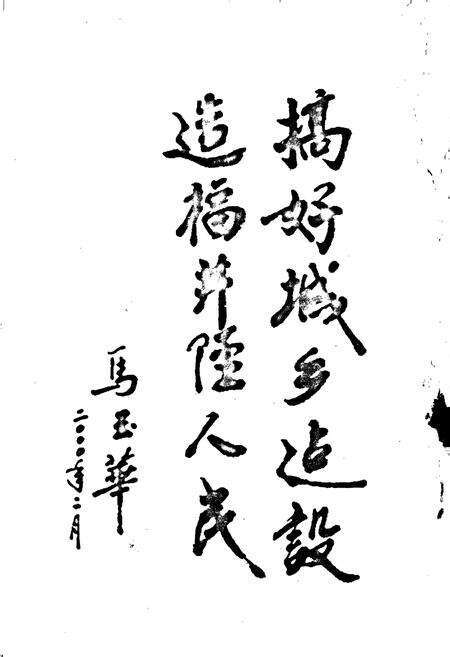 搞好城乡建设
造福井陘人民
馬玉華
二〇〇〇年二月